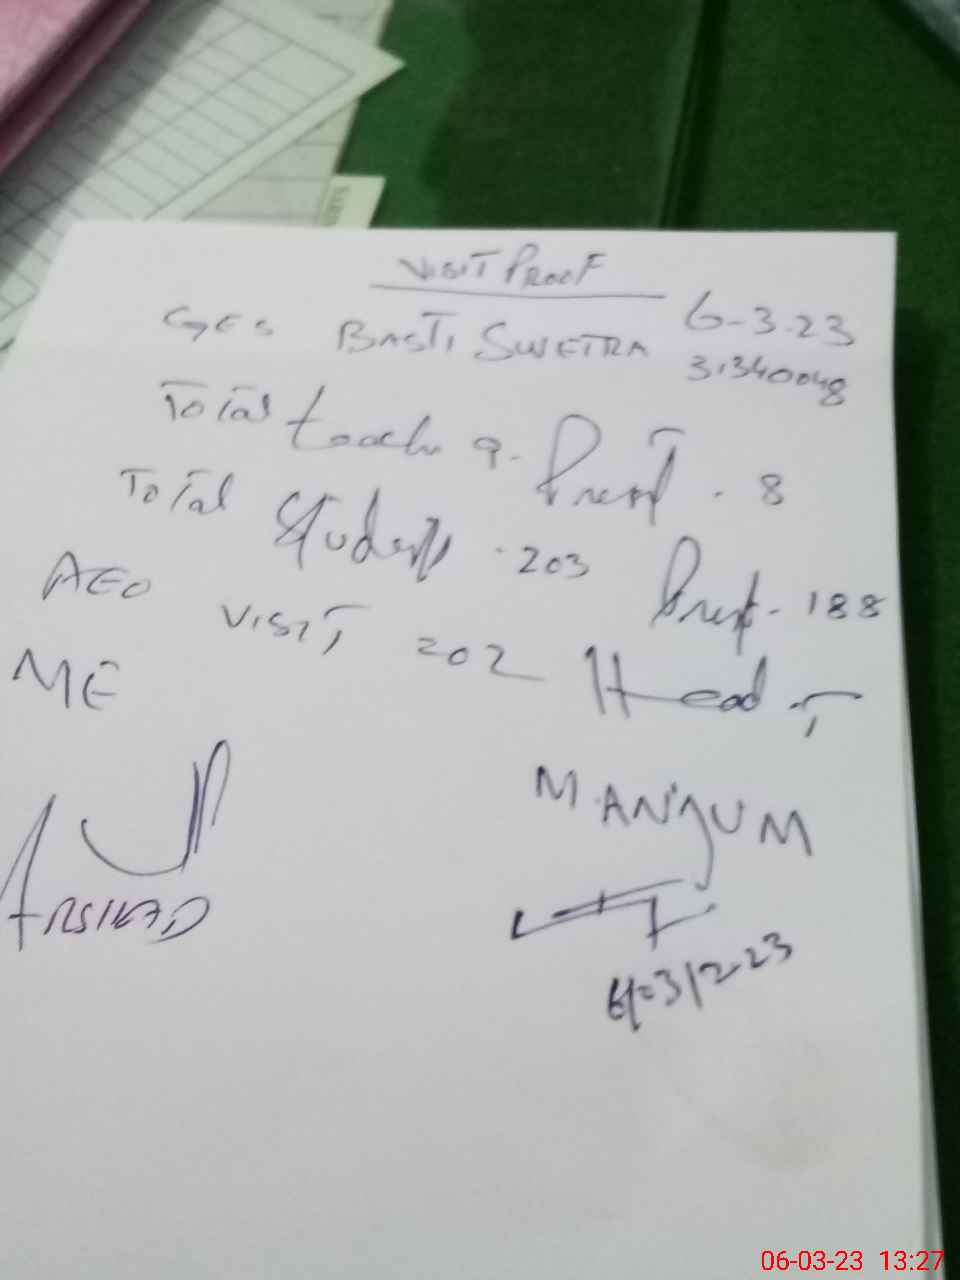 VISIT PROOF
6-3-23
GES BASTI SWETRA 31340048
Total teach 9. Prest. 8
Total Students. 203 Prest. 188
AEO VISIT 202 Head T
ME
M. ANJUM
ARSHAD
06-03-23 13:27